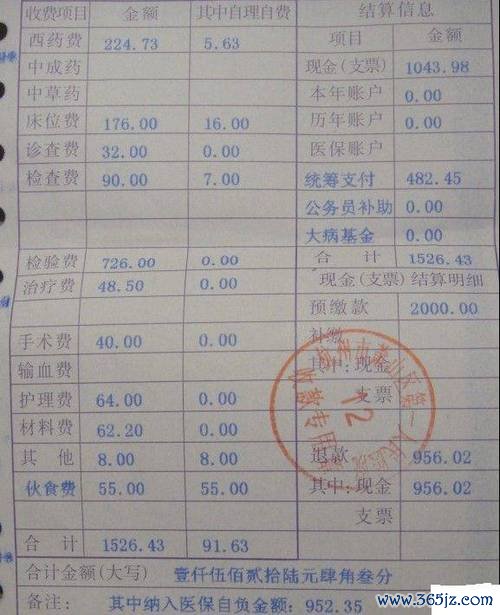 收费项目 金额 其中自理自费 结算信息
西药费 224.73 5.63 项目 金额
中成药 现金(支票) 1043.98
中草药 本年账户 0.00
床位费 176.00 16.00 历年账户 0.00
诊查费 32.00 0.00 医保账户
检查费 90.00 7.00 统筹支付 482.45
公务员补助 0.00
大病基金 0.00
检验费 726.00 0.00 合计 1526.43
治疗费 48.50 0.00 现金(支票)结算明细
预缴款 2000.00
手术费 40.00 0.00 补缴
输血费 其中:现金
护理费 64.00 0.00 支票
材料费 62.20 0.00
其他 8.00 8.00 退款 956.02
伙食费 55.00 55.00 其中:现金 956.02
支票
合计 1526.43 91.63
合计金额(大写) 壹仟伍佰贰拾陆元肆角叁分
备注: 其中纳入医保自负金额:952.35
12
www.365jz.com